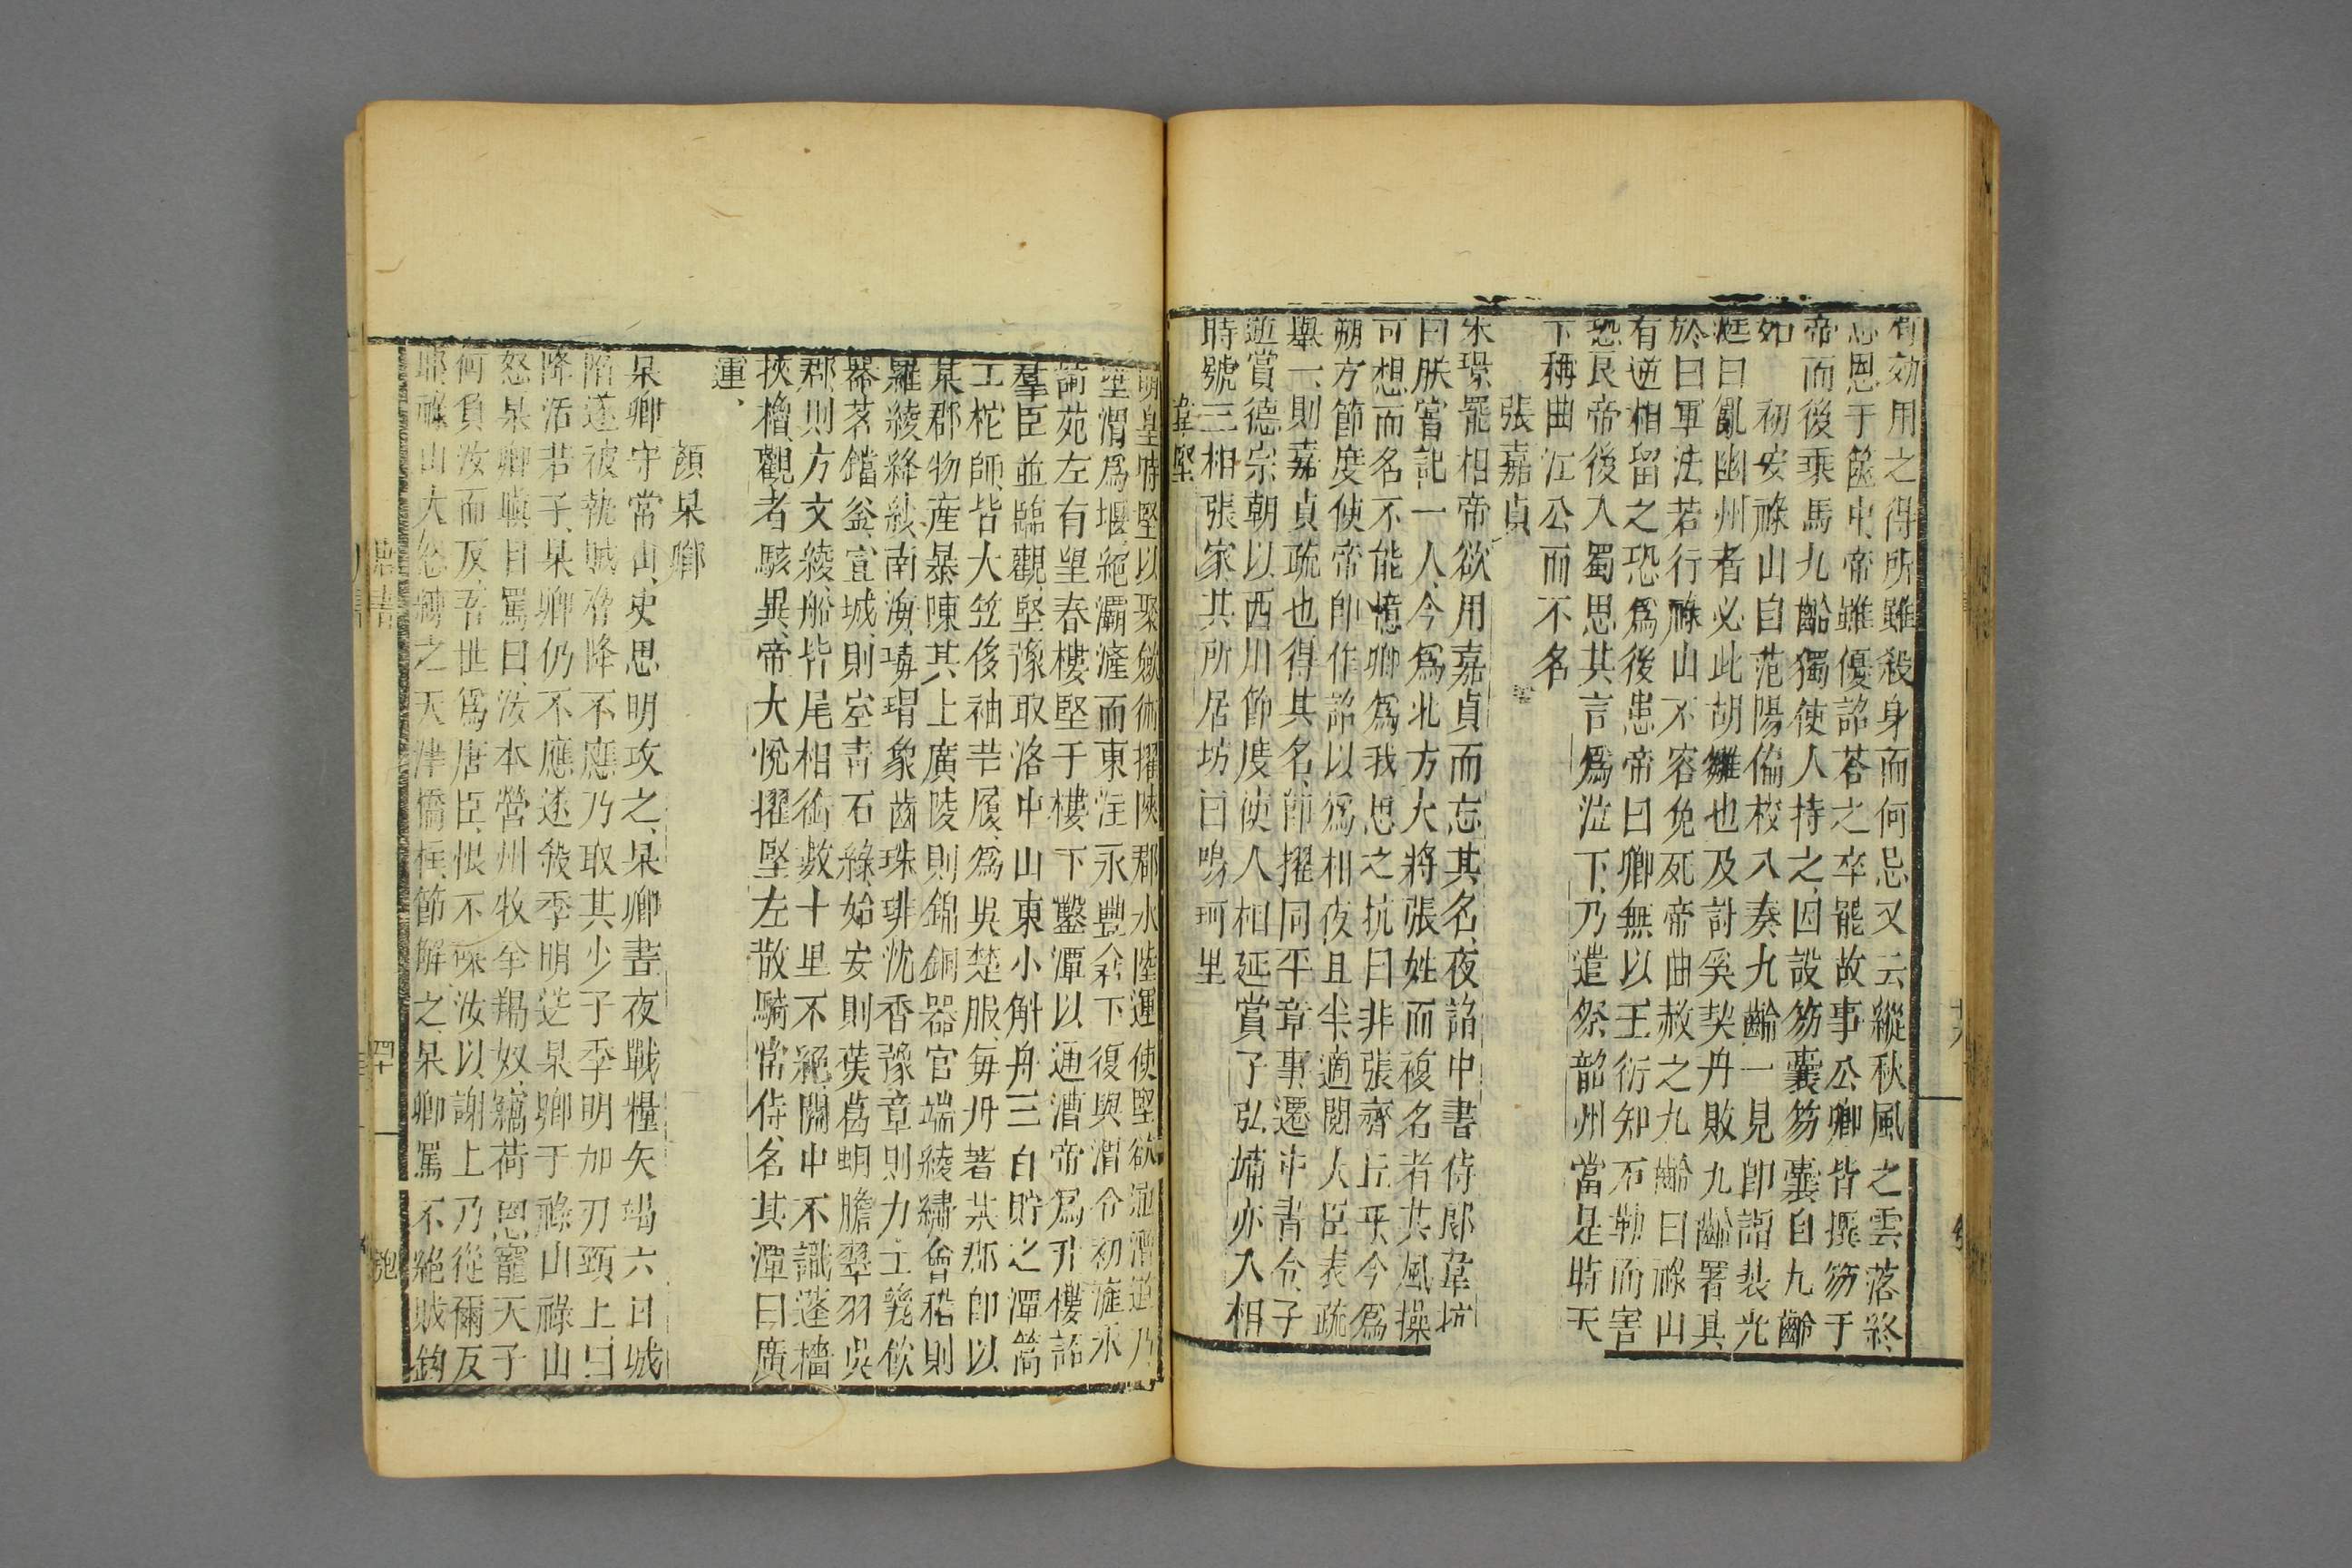 有効用之得所雖殺身而何忌又云縱秋風之雲落終
感恩于篋中帝雖優詔荅之卒罷故事公卿皆搢笏于
帝而後乘馬九齡獨使人持之因設笏囊笏囊自九齡
如 初安祿山自范陽偏校入奏九齡一見卽謂裴光
庭曰亂幽州者必此胡雛也及討奚契丹敗九齡署其
於曰軍法若行祿山不容免死帝曲赦之九齡曰祿山
有逆相留之恐爲後患帝曰卿無以王衍知石勒而害
恐良帝後入蜀思其言爲泣下乃遣祭韶州當是時天
下稱曲江公而不名
張嘉貞
宋璟罷相帝欲用嘉貞而忘其名夜詔中書侍郎韋抗
曰朕嘗記一人今爲北方大將張姓而複名者其風操
可想而名不能憶卿爲我思之抗曰非張齊丘乎今爲
朔方節度使帝卽作詔以爲相夜且半適閱大臣表疏
舉一則嘉貞疏也得其名卽擢同平章事遷中書令子
延賞德宗朝以西川節度使入相延賞子弘靖亦入相
時號三相張家其所居坊曰鳴珂里
韋堅
明皇時堅以聚斂術擢陝郡水陸運使堅欲通漕道乃
堊渭爲堰絕灞滻而東注永豐倉下復與渭合初滻水
崙苑左有望春樓堅于樓下鑿潭以通漕帝爲升樓詔
羣臣並臨觀堅豫取洛中山東小斛舟三百貯之潭篙
工柁師皆大笠侈袖芒屨爲吳楚服每舟署某郡卽以
某郡物產暴陳其上廣陵則錦銅器官端綾繡會稽則
羅綾絳紗南海瑇瑁象齒珠琲沈香豫章則力士甆飲
器茗鐺釜宣城則空青石綠始安則蕉葛蚺膽翠羽吳
郡則方文綾船皆尾相銜數十里不絕關中不識連檣
挾櫓觀者駭異帝大悅擢堅左散騎常侍名其潭曰廣
運
顏杲卿
杲卿守常山史思明攻之杲卿晝夜戰糧矢竭六日城
陷遂被執賊脅降不應乃取其少子季明加刃頸上曰
降活若子杲卿仍不應遂殺季明送杲卿于祿山祿山
怒杲卿瞋目罵曰汝本營州牧羊羯奴竊荷恩寵天子
何負汝而反吾世爲唐臣恨不碟汝以謝上乃從爾反
耶祿山大怒縛之天津橋柱節解之杲卿罵不絕賊鉤
唐書 四十